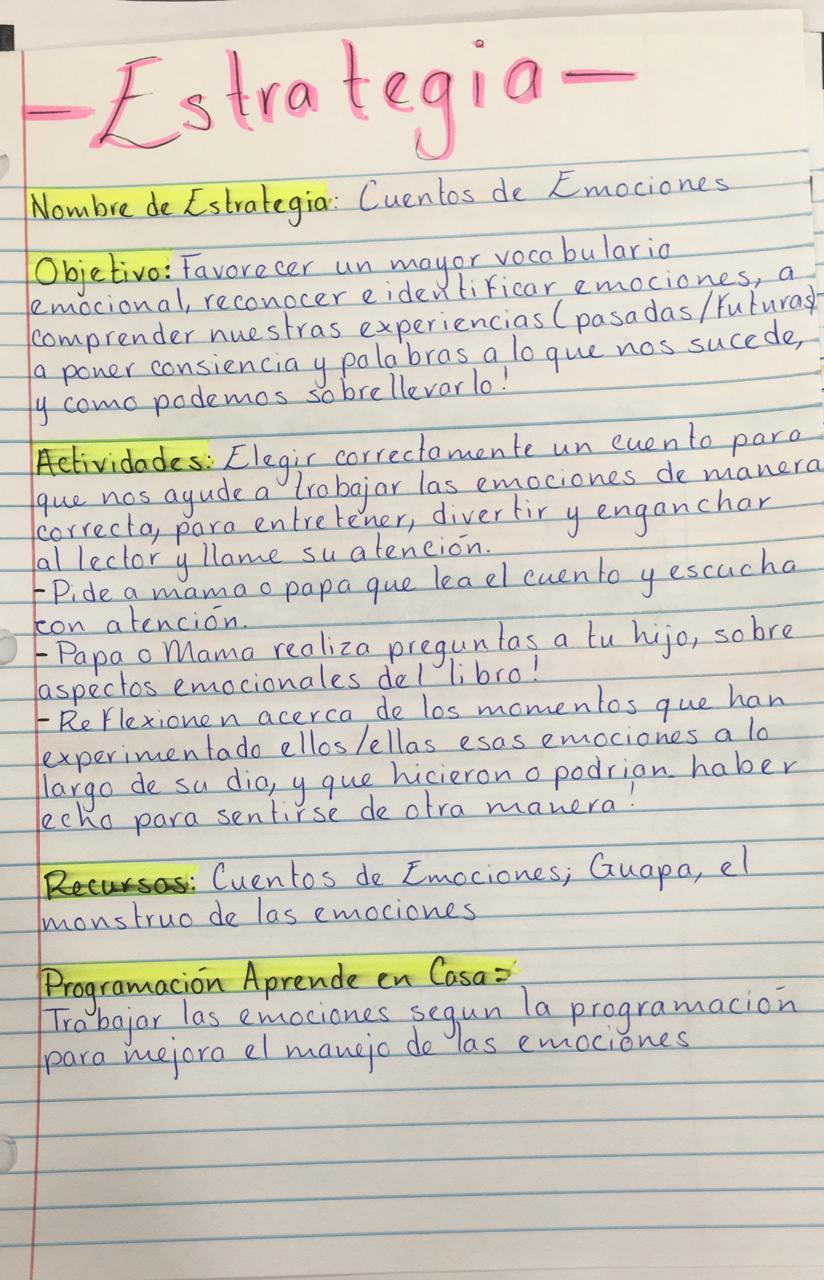 - Estrategia -
Nombre de Estrategia: Cuentos de Emociones
Objetivo: Favorecer un mayor vocabulario
emocional, reconocer e identificar emociones, a
comprender nuestras experiencias (pasadas/futuras)
a poner consiencia y palabras a lo que nos sucede,
y como podemos sobrellevarlo!
Actividades: Elegir correctamente un cuento para
que nos ayude a trabajar las emociones de manera
correcta, para entretener, divertir y enganchar
al lector y llame su atención.
- Pide a mama o papa que lea el cuento y escucha
con atención.
- Papa o Mama realiza preguntas a tu hijo, sobre
aspectos emocionales del libro!
- Reflexionen acerca de los momentos que han
experimentado ellos/ellas esas emociones a lo
largo de su dia, y que hicieron o podrian haber
echo para sentirse de otra manera!
Recursos: Cuentos de Emociones; Guapa, el
monstruo de las emociones
Programación Aprende en Casa:
Trabajar las emociones segun la programación
para mejora el manejo de las emociones